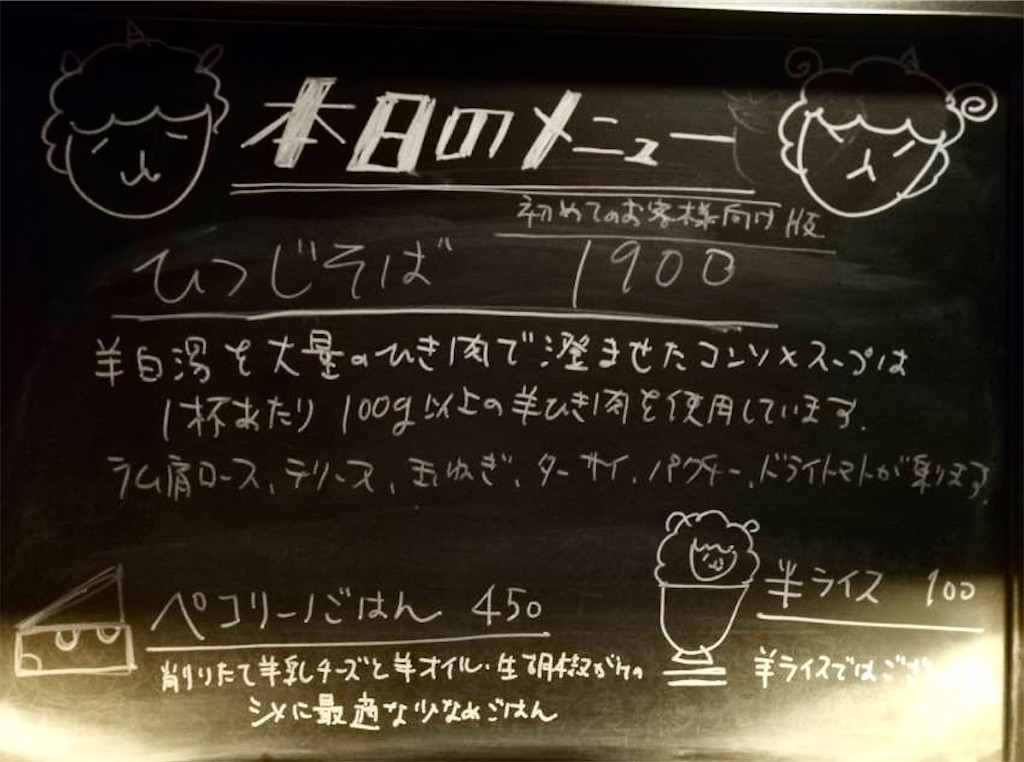 本日のメニュー
初めてのお客様向け版
ひつじそば 1900
羊白湯を大量のひき肉で澄ませたコンソメスープは
1杯あたり 100g以上の羊ひき肉を使用しています.
ラム肩ロース、デリース、玉ねぎ、ターサイ、パクチー、ドライトマトが乗ります.
ペコリーノごはん 450
削りたて羊乳チーズと羊オイル・生胡椒がけの
シメに最適な少なめごはん
半ライス 100
羊ライスではござ